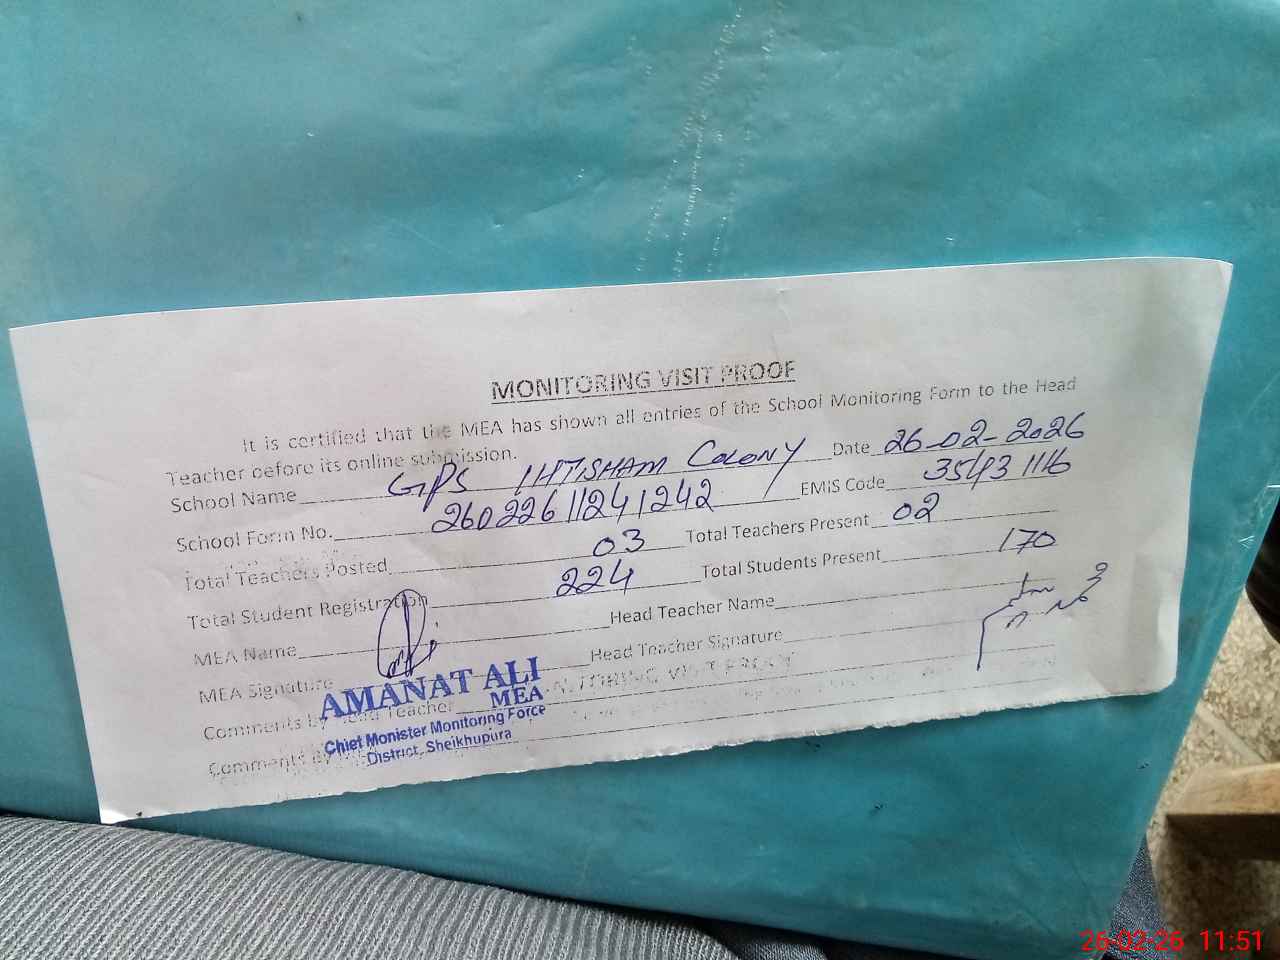 MONITORING VISIT PROOF
It is certified that the MEA has shown all entries of the School Monitoring Form to the Head
Teacher before its online submission.
School Name GPS IHTISHAM COLONY Date 26-02-2026
School Form No. 26022611241242 EMIS Code 35431116
Total Teachers Posted 03 Total Teachers Present 02
Total Student Registration 224 Total Students Present 170
MEA Name Head Teacher Name
MEA Signature Head Teacher Signature
Comments by Head Teacher
Comments by
AMANAT ALI
MEA
Chiet Monister Monitoring Force
District, Sheikhupura
MONITORING VISIT PROOF
26-02-26 11:51